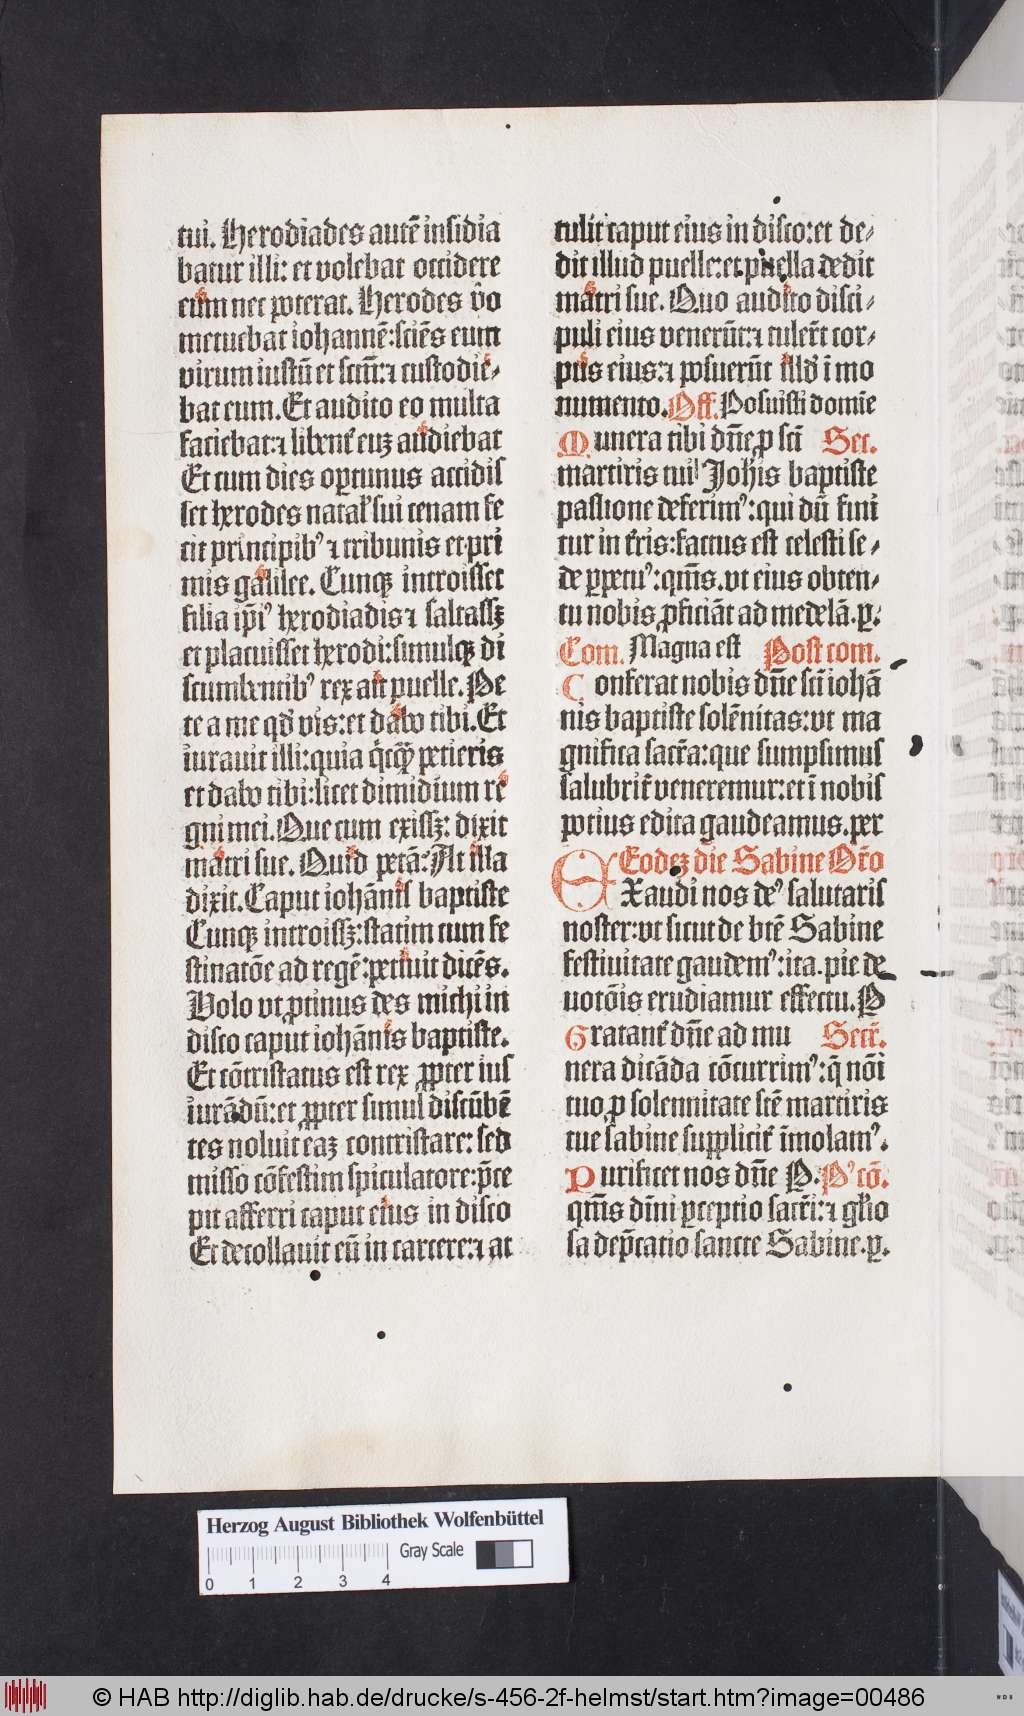 tui. Herodiades autē insidia
batur illi: et volebat occidere
eum nec poterat. Herodes v̊o
metuebat iohannē: sciēs eum
virum iustū et sctm̄: ⁊ custodie⸗
bat eum. Et audito eo multa
faciebat: ⁊ libent̄ euꝫ audiebat
Et cum dies oꝑtunus accidis
set herodes natal' sui cenam fe
cit principib' ⁊ tribunis et pri
mis galilee. Cunqꝫ introisset
filia ip̄i' herodiadis ⁊ saltassꝫ
et placuisset herodi: simulqꝫ di
scumbentib' rex ait puelle. Pe
te a me qd' vis: et dabo tibi. Et
iurauit illi: quia petieris
et dabo tibi: licet dimidium re
gni mei. Que cum exissꝫ: dixit
matri sue. Quid petā: At illa
dixit. Caput iohānis baptiste
Cunqꝫ introissꝫ: statim cum fe
stinatōe ad regē: petiuit dicēs.
Volo vt ꝓtinus des michi in
disco caput iohānis baptiste.
Et cōtristatus est rex ꝓpter ius
iurādū: et ꝓpter simul discūbē
tes noluit eaꝫ contristare: sed
misso cōfestim spiculatore: p̄ce
pit afferri caput eius in disco
Et decollauit eū in carcere: ⁊ at
tulit caput eius in disco: et de⸗
dit illud puelle: et puella dedit
matri sue. Quo audito disci⸗
puli eius venerūt: ⁊ tulert̄ cor⸗
pus eius: ⁊ posuerūt illd' ī mo
numento. Off. Posuisti domīe
Munera tibi dn̄e ꝓ scī Sec.
martiris tui Joh'is baptiste
passione deferim': qui dū fini
tur in t̄ris: factus est celesti se⸗
de ꝑpetu': qm̄s. vt eius obten⸗
tu nobis ꝓficiāt ad medelā. ꝑ.
Com. Magna est Post com.
Conferat nobis dn̄e scī iohā
nis baptiste solēnitas: vt ma
gnifica sacr̄a: que sumpsimus
salubrit̄ veneremur: et ī nobis
potius edita gaudeamus. per
Eodeꝫ die Sabine Or̄o
EXaudi nos de' salutaris
noster: vt sicut de btē Sabine
festiuitate gaudem': ita. pie de
uotōis erudiamur effectu. P
Gratant̄ dn̄e ad mu Secr̄.
nera dicāda cōcurrim': q̄ nōi
tuo ꝓ solennitate sctē martiris
tue sabine supplicit̄ īmolam'.
Purificet nos dn̄e P. P' cō.
qm̄s dn̄i ꝑceptio sacr̄i: ⁊ gl'io
sa dep̄catio sancte Sabine. ꝑ.
Herzog August Bibliothek Wolfenbüttel
Gray Scale
0 1 2 3 4
© HAB http://diglib.hab.de/drucke/s-456-2f-helmst/start.htm?image=00486